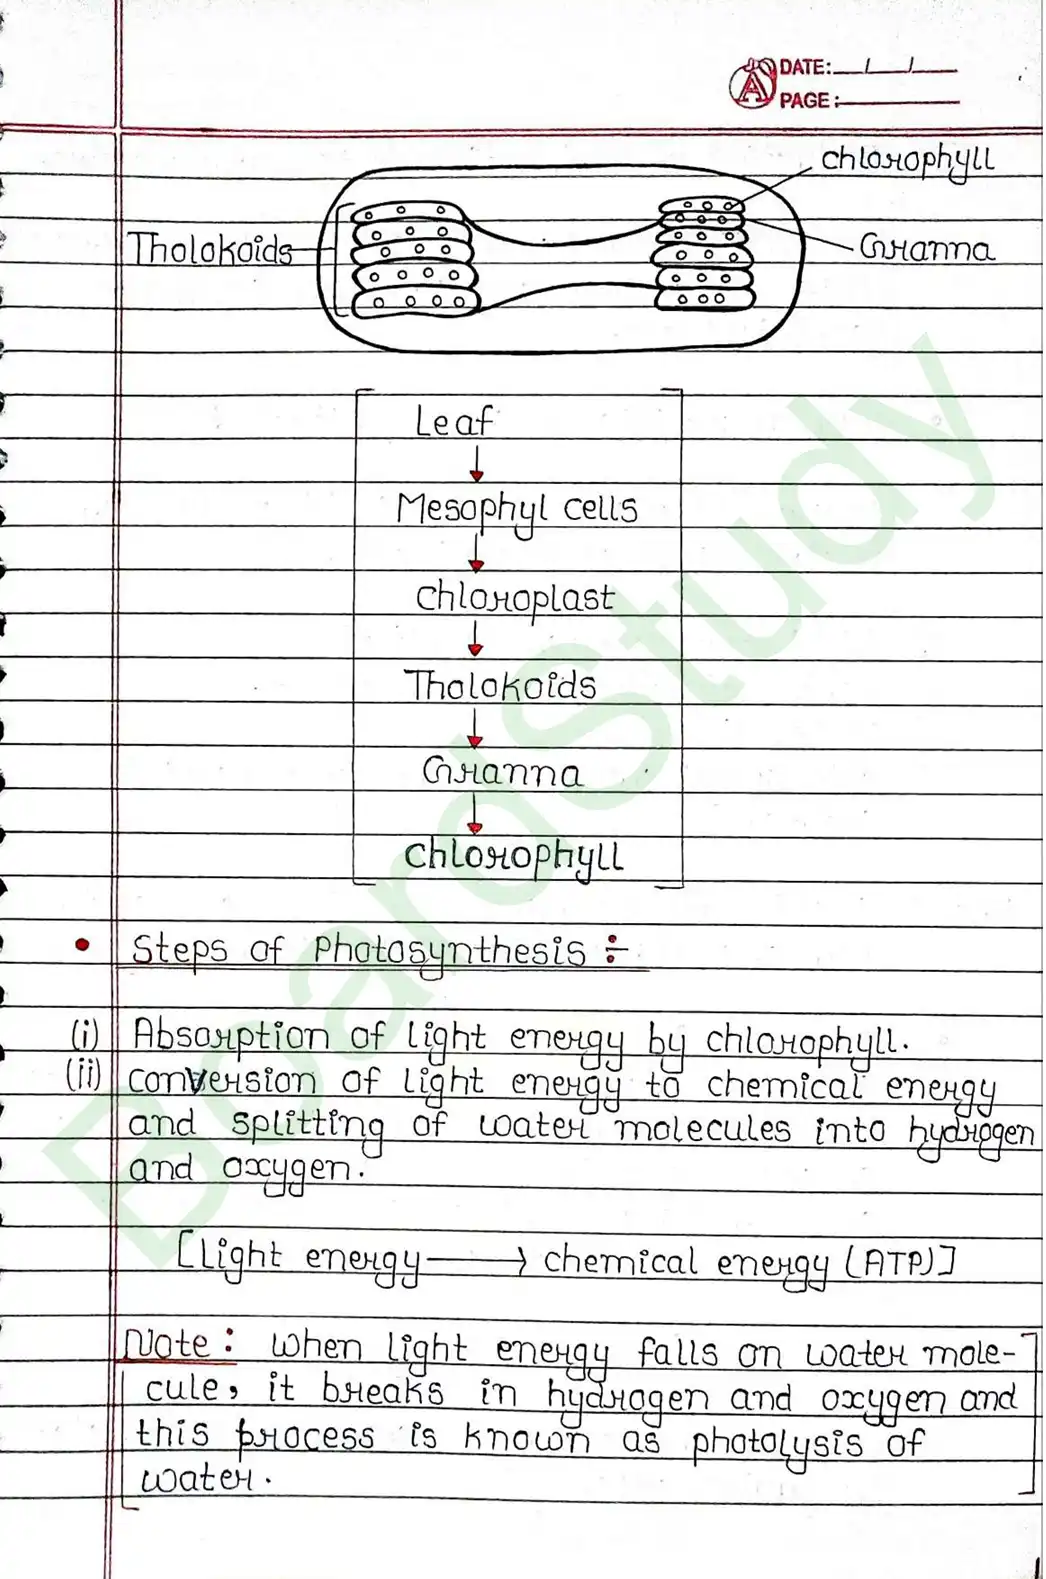 DATE: / /
PAGE:
chlorophyll
Tholokoids
Granna
Leaf
Mesophyl cells
chloroplast
Tholokoids
Granna
chlorophyll
• Steps of Photosynthesis :-
(i) Absorption of light energy by chlorophyll.
(ii) conversion of light energy to chemical energy
and splitting of water molecules into hydrogen
and oxygen.
[Light energy → chemical energy (ATP)]
Note: When light energy falls on water mole-
cule, it breaks in hydrogen and oxygen and
this process is known as photolysis of
water.
BoardStudy